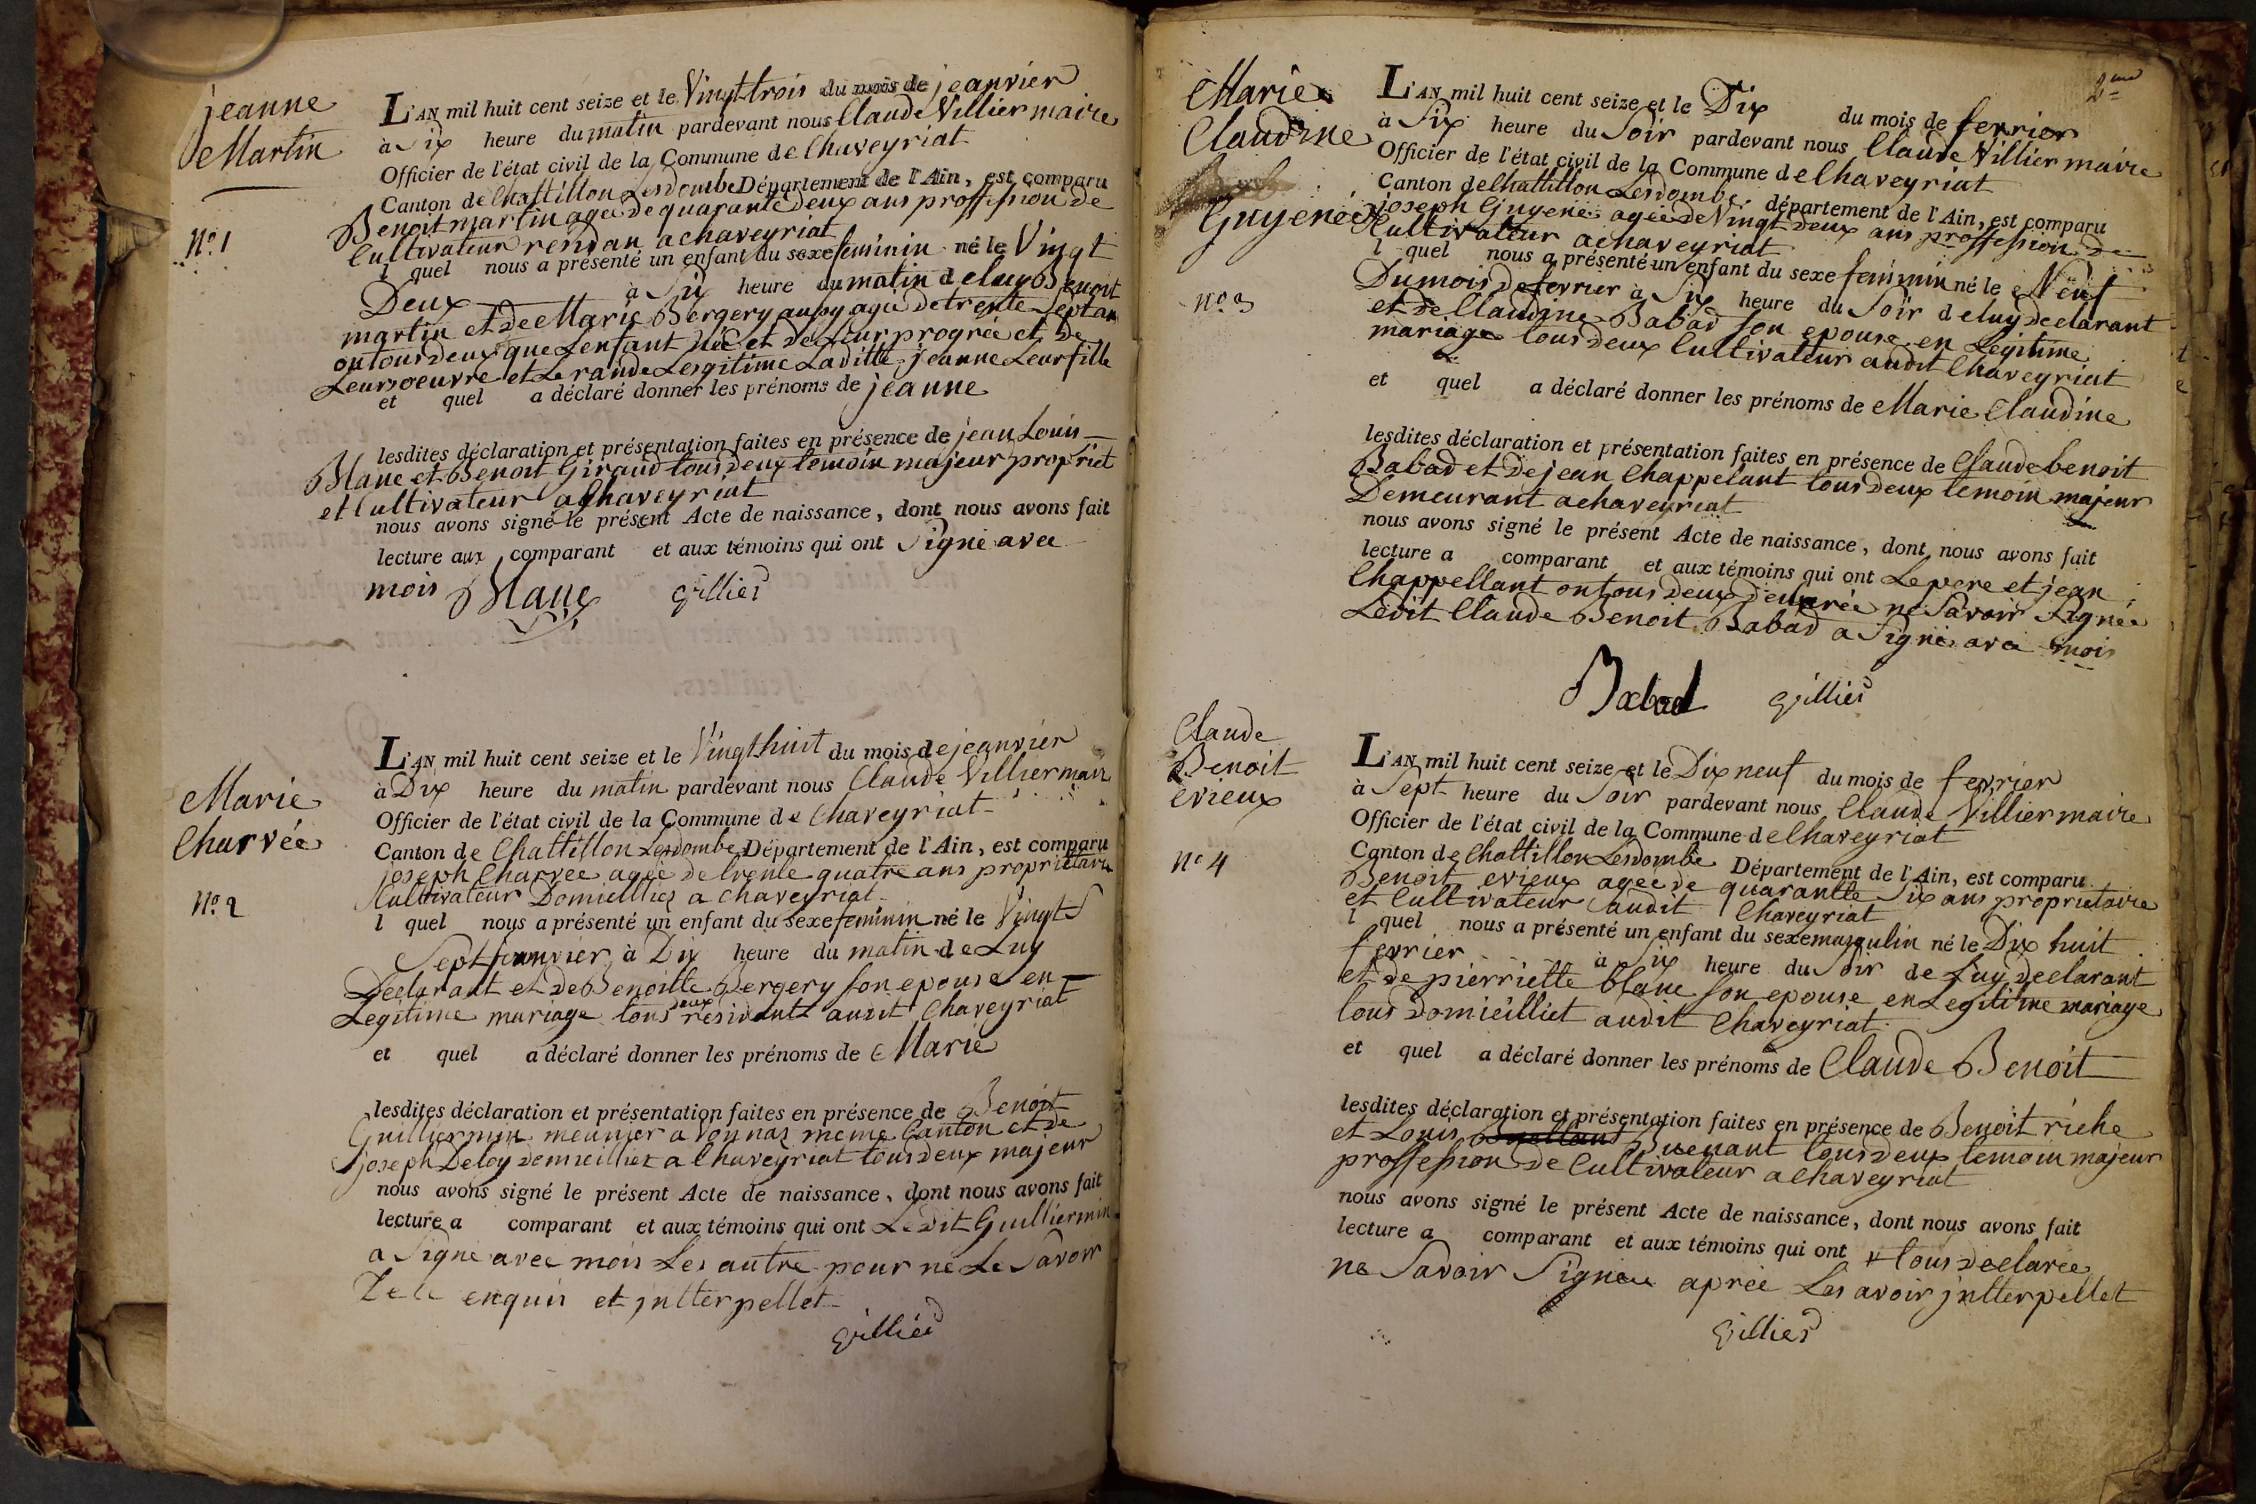 jeanne
Martin
N.o 1
L'AN mil huit cent seize et le Vingt trois du mois de jeanvier
à Dix heure du matin pardevant nous Claude Villier maire
Officier de l'état civil de la Commune de Chaveyriat
Canton de Chattillon Lesdombe Département de l'Ain, est comparu
Benoit martin agée de quarante Deux ans proffession de
Cultivateur residan a chaveyriat
l quel nous a présenté un enfant du sexe feminin né le Vingt
Deux à Six heure du matin de luy Benoit
martin et de Marie Bergery aupy agée de trente Sept an
on tous deux que Lenfant née et de leur progrée et de
Leurs oeuvre et Le rande Lesgitime Laditte jeanne Leur fille
et quel a déclaré donner les prénoms de jeanne
lesdites déclaration et présentation faites en présence de jean Louis
Blanc et Benoit Giraud tous deux temoin majeur propriet
et Cultivateur a Chaveyriat
nous avons signé le présent Acte de naissance, dont nous avons fait
lecture aux comparant et aux témoins qui ont Signé avec
mois Blanc Villier
Marie
Charvée
N.o 2
L'AN mil huit cent seize et le Vingt huit du mois de jeanvier
à Dix heure du matin pardevant nous Claude Villier mair
Officier de l'état civil de la Commune de Chaveyriat
Canton de Chattillon Lesdombe Département de l'Ain, est comparu
joseph Charvee agée de trente quatre ans proprietaire
Cultivateur Domiellier a chaveyriat
l quel nous a présenté un enfant du sexe feminin né le Vingt
Sept janvier à Dix heure du matin de Luy
Declarant et de Benoitte Bergery son epouse en
Legitime mariage tous deux residant audit Chaveyriat
et quel a déclaré donner les prénoms de Marie
lesdites déclaration et présentation faites en présence de Benoit
Guilliermin meunier a vonnas meme Canton et de
joseph Deloy Domicillier a Chaveyriat tous deux majeur
nous avons signé le présent Acte de naissance, dont nous avons fait
lecture a comparant et aux témoins qui ont Ledit Guilliermin
a Signé avec mois Les autre pour ne Le Savoir
enquis et jntterpellet
Villier
2me
Marie
Claudine
Guyenée
N.o 3
L'AN mil huit cent seize et le Dix du mois de fevrier
à Six heure du Soir pardevant nous Claude Villier maire
Officier de l'état civil de la Commune de Chaveyriat
Canton de Chattillon Lesdombe département de l'Ain, est comparu
joseph Guyene agée de Vingt deux ans proffession de
Cultivateur a chaveyriat
l quel nous a présenté un enfant du sexe feminin né le Neuf
Du mois de fevrier à Six heure du Soir de luy declarant
et de Claudine Babad son epouse en Legitime
mariage tous deux Cultivateur audit Chaveyriat
et quel a déclaré donner les prénoms de Marie Claudine
lesdites déclaration et présentation faites en présence de Claude benoit
Babad et de jean Chappelant tous deux temoin majeur
Demeurant a chaveyriat
nous avons signé le présent Acte de naissance, dont nous avons fait
lecture a comparant et aux témoins qui ont Le pere et jean
Chappellant on tous deux ne Savoir Signée
Ledit Claude Benoit Babad a Signé avec mois
Babad Villier
Claude
Benoit
evieux
N.o 4
L'AN mil huit cent seize et le Dix neuf du mois de fevrier
à Sept heure du Soir pardevant nous Claude Villier maire
Officier de l'état civil de la Commune de Chaveyriat
Canton de Chattillon Lesdombe Département de l'Ain, est comparu
Benoit evieux agée de quarantte Six ans proprietaire
et Cultivateur audit Chaveyriat
l quel nous a présenté un enfant du sexe masculin né le Dix huit
fevrier à Six heure du Soir de Luy declarant
et de pierriette blanc son epouse en Legitime mariage
tous Domicilliet audit Chaveyriat
et quel a déclaré donner les prénoms de Claude Benoit
lesdites déclaration et présentation faites en présence de Benoit riche
et Louis Buenant tous deux temoin majeur
proffession de Cultivateur a Chaveyriat
nous avons signé le présent Acte de naissance, dont nous avons fait
lecture a comparant et aux témoins qui ont tous declaree
ne Savoir Signee aprée Les avoir jntterpellet
Villier